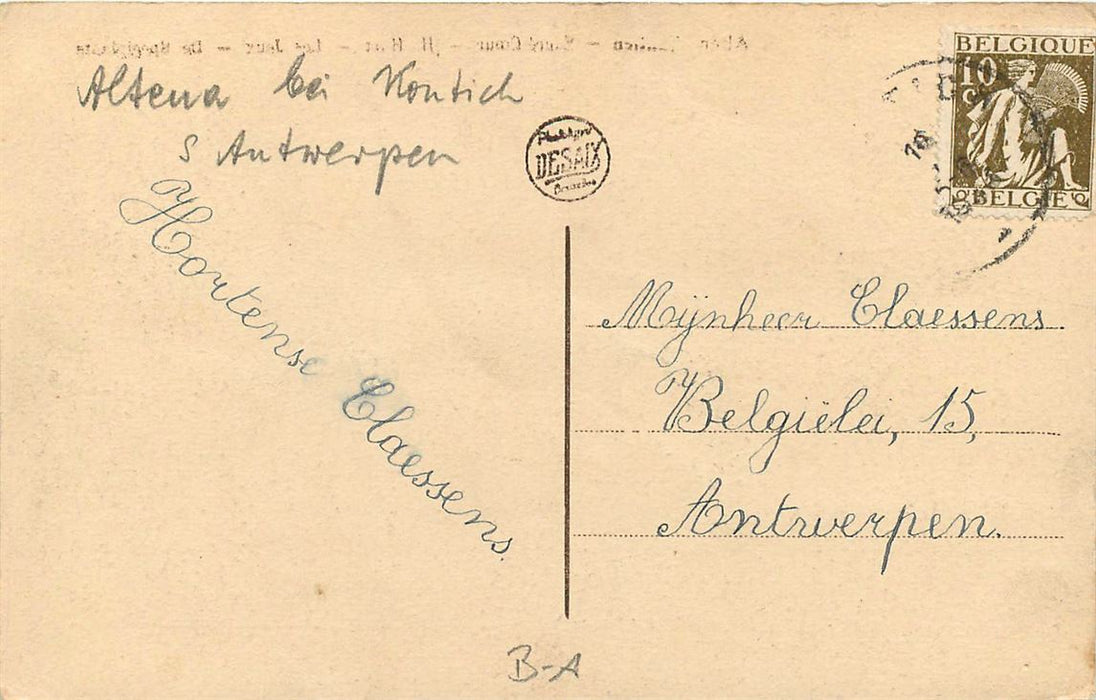 Altena bei Kontich
S Antwerpen
Hortense Claessens.
DESAIX
BELGIQUE
10
C
BELGIE
Mijnheer Claessens.
Belgiëlei, 15,
Antwerpen.
B-A